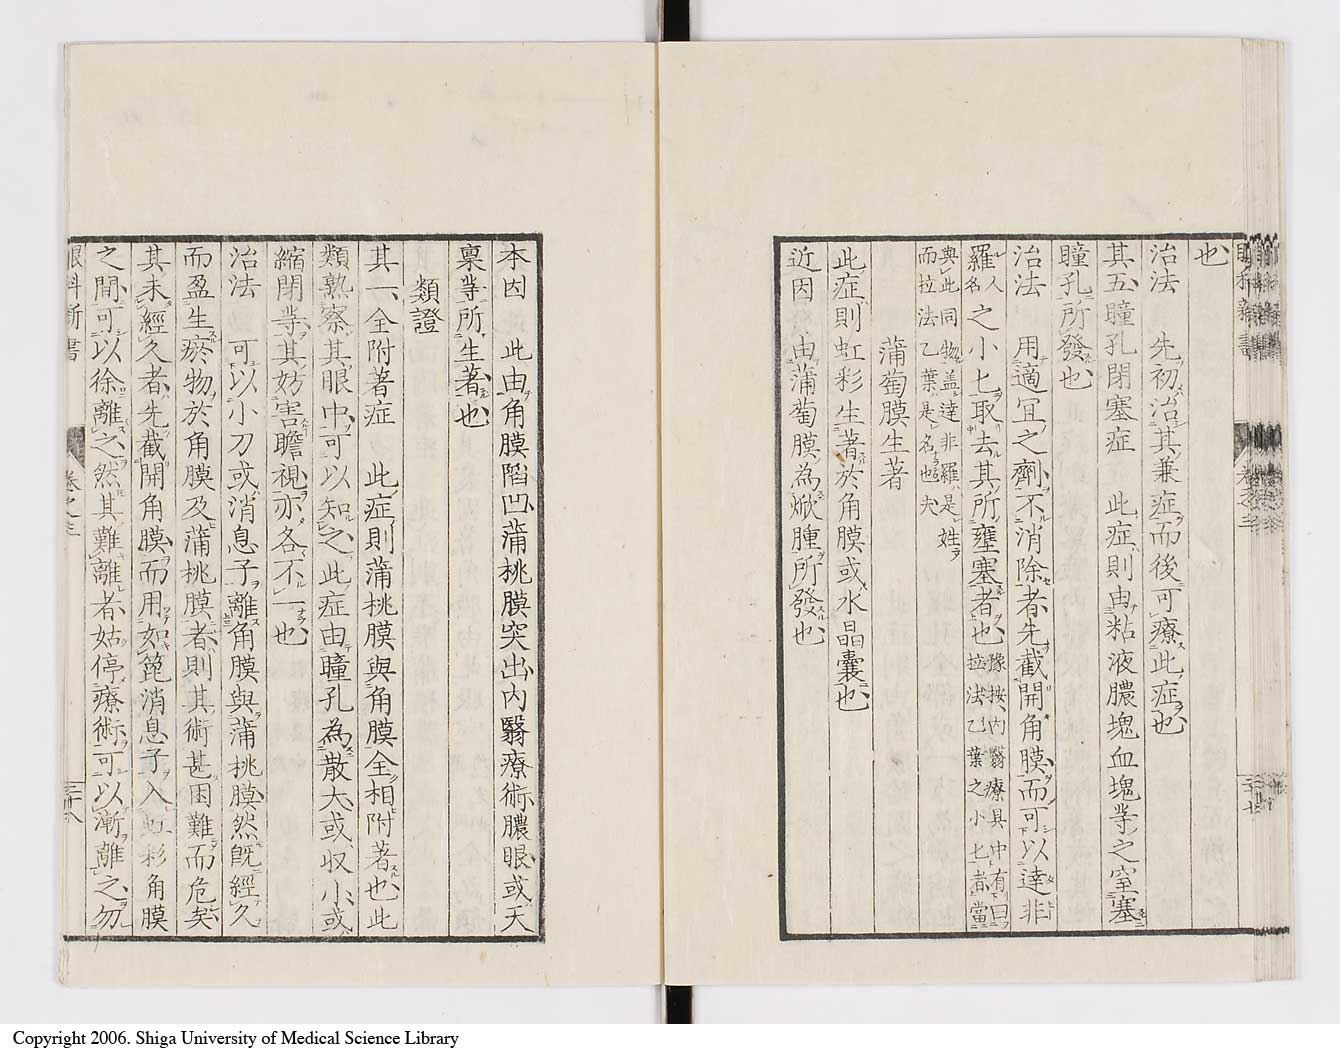 也
治法　先初治其兼症而後可療此症也
其五瞳孔閉塞症　此症則由粘液膿塊血塊等之窒塞
瞳孔所發也
治法　用適宜之劑不消除者先截開角膜而可以達非
羅人名之小匕取去其所壅塞者也豫按內翳療具中有曰拉法乙葉之小匕者當
與此同物盖達非羅是姓而拉法乙葉是名也夫
蒲萄膜生著
此症則虹彩生著於角膜或水晶囊也
近因　由蒲萄膜為焮腫所發也
本因　此由角膜陷凹蒲桃膜突出內翳療術膿眼或天
稟等所生著也
類證
其一全附著症　此症則蒲桃膜與角膜全相附著也此
類熟察其眼中可以知之此症由瞳孔為散大或収小或
縮閉等其妨害瞻視亦各不一也
治法　可以小刀或消息子離角膜與蒲桃膜然既經久
而盈生瘀物於角膜及蒲桃膜者則其術甚困難而危矣
其未經久者先截開角膜而用如篦消息子入虹彩角膜
之間可以徐離之然其難離者姑停療術可以漸離之勿
眼科新書　卷之三　三十八
Copyright 2006. Shiga University of Medical Science Library